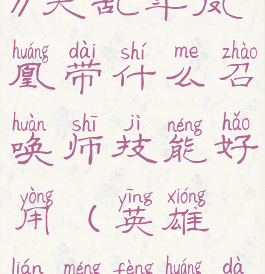 huáng dài shí me zhào
凰带什么召
huàn shī jì néng hǎo
唤师技能好
yòng yīng xióng
用（英雄
lián méng fèng huáng dà